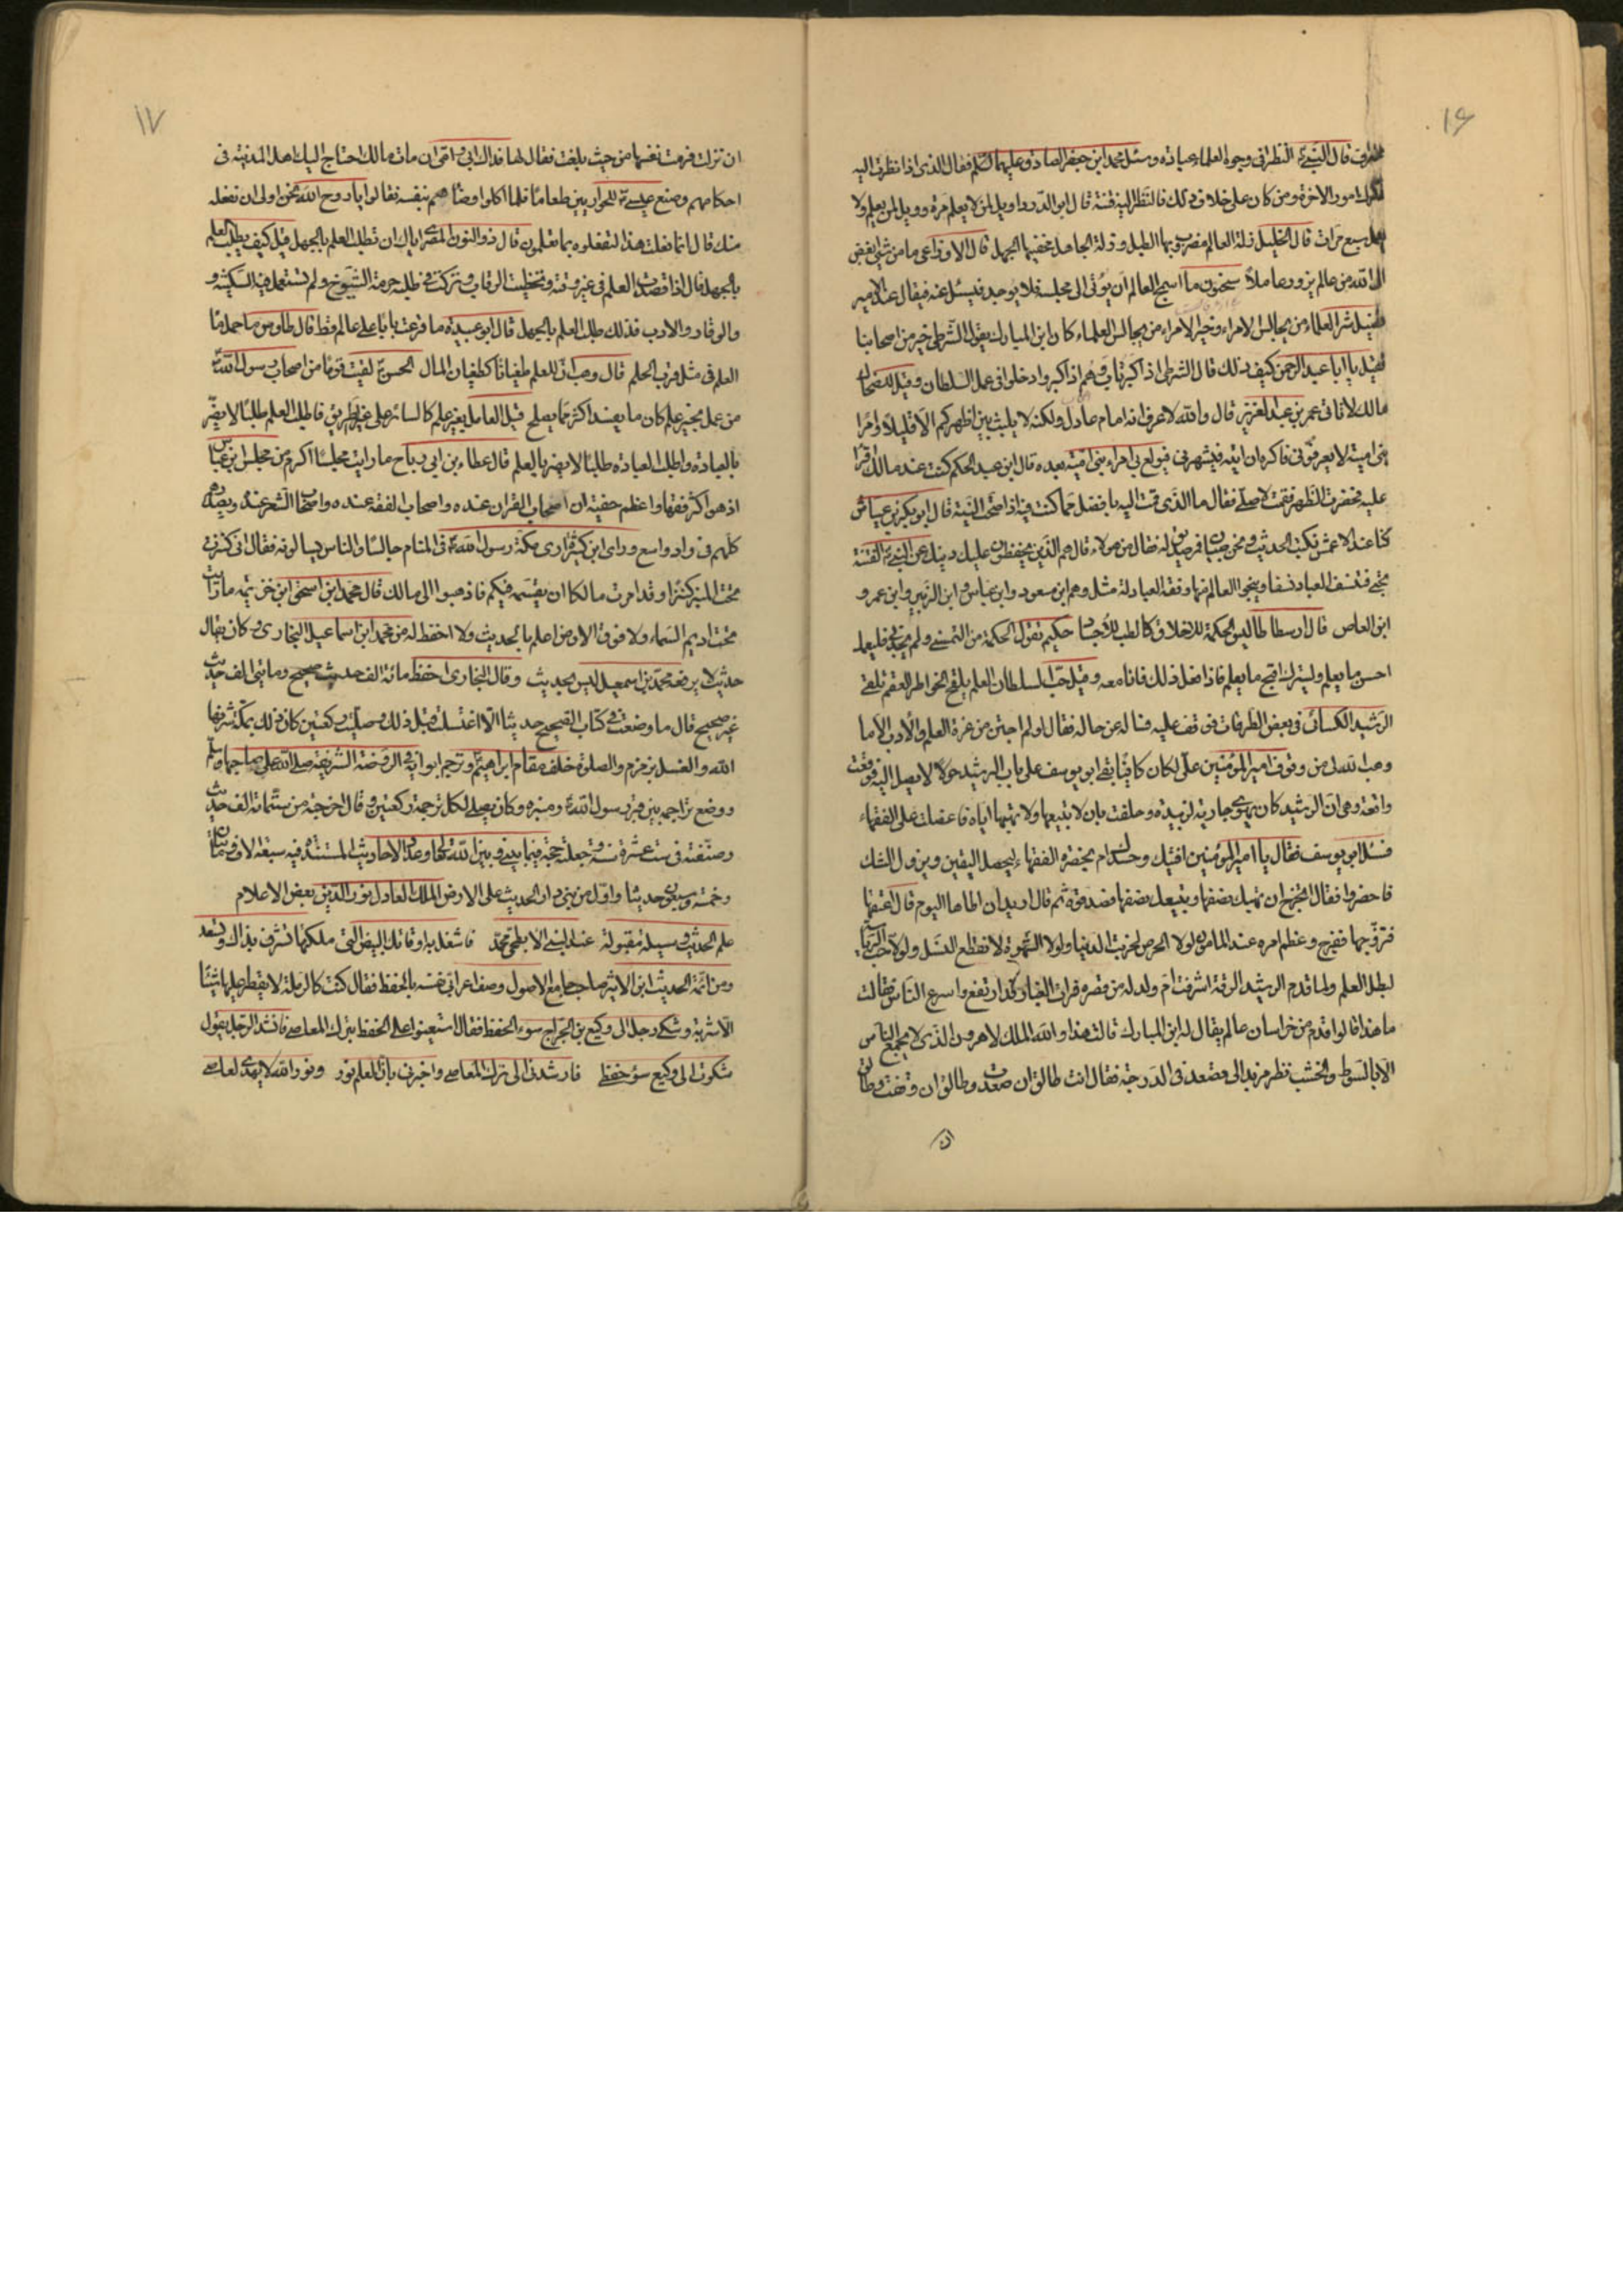 ۱۶
قال النبي النظر في وجوه العلماء عبادة وسئل محمد ابن جعفر الصادق عليهما السلم فقال الذي اذا نظرت اليه
امور الاخرة ومن كان على خلاف ذلك فالنظر اليه فتنة قال ابو الدرداء ويل لمن لا يعلم مرة وويل لمن يعلم ولا
سبع مرات قال الخليل زلة العالم مضروب بها الطبل وزلة الجاهل يخفيها الجهل قال الاوزاعي ما من شئ ابغض
الى الله من عالم يزور عاملا سحنون ما اسمج العالم ان يؤتى الى مجلسه فلا يوجد فيسئل عنه فيقال عند الامير
شر العلماء من يجالس الامراء وخير الامراء من يجالس العلماء كان ابن المبارك يقول الشرطي خير من اصحابنا
فقيل يا ابا عبد الرحمن كيف ذلك قال الشرطي اذا كبر تاب وهم اذا كبروا دخلوا في عمل السلطان وقيل
مالك لا تاتي عمر بن عبد العزيز قال والله لاعرف انه امام عادل ولكنه لا يلبث بين اظهركم الا قليلا
بني امية لا يعرفوني فاكره ان اتيه فيشهرني فيولع بي امراء بني امية بعده قال ابن عبد الحكم كنت عند مالك اقرا
عليه فحضرت الظهر فقمت لاصلي فقال ما الذي قمت اليه بافضل مما كنت فيه اذا صحت النية قال ابو بكر بن عياش
كنا عند الاعمش نكتب الحديث ونحن صبيان فمر صديق له فقال من هولاء قال هم الذين يحفظون عليك دينك عن النبي الفتنة
تجئ فتنسف العباد نسفا وينجوا العالم منها وفقه العبادلة مثل وهم ابن مسعود وابن عباس وابن الزبير وابن عمرو
ابن العاص قال ارسطاطاليس الحكمة للاخلاق كالطب للاجساد حكيم تقول الحكمة من التمسني ولم يجدني فليعمل
احسن ما يعلم وليترك اقبح ما يعلم فاذا فعل ذلك فانا معه وقيل العلم يلقح الخواطر العقم تلقى
الرشيد الكسائي في بعض الطرقات فوقف عليه فساله عن حاله فقال لو لم اجتن من ثمرة العلم والادب الا ما
وهب الله لي من وقوف امير المؤمنين علي لكان كافيا بقي ابو يوسف على باب الرشيد حولا لا يصل اليه فوقعت
واقعة وهي ان الرشيد كان يهوى جارية لزبيدة وحلفت بان لا تبيعها ولا تهبها اياه فاعضلت على الفقهاء
فسئل ابو يوسف فقال يا امير المؤمنين افتيك وحدك ام بحضرة الفقهاء ليحصل اليقين ويزول الشك
فاحضروا فقال المخرج ان تهبك نصفها وتبيعك نصفها فصدقوه ثم قال اريد ان اطاها اليوم قال اعتقها
فتزوجها ففرح وعظم امره عند المامون لولا الحرص لخربت الدنيا ولولا الشهوة لانقطع النسل ولولا حب الرياسة
لبطل العلم ولما قدم الرشيد الرقة اشرفت ام ولد له من قصره فرات الغبار قد ارتفع واسرع الناس فقالت
ما هذا قالوا قدم من خراسان عالم يقال له ابن المبارك قالت هذا والله الملك لا هرون الذي لا يجمع الناس
الا بالسوط والخشب نظر مزيد الى مصعدة في الدرجة فقال انت طالق ان صعدت وطالق ان وقفت وطالق
ان
۱۷
ان نزلت فرمت نفسها من حيث بلغت فقال لها فداك ابي وامي ان مات مالك احتاج اليك اهل المدينة في
احكامهم وصنع عيسى للحواريين طعاما فلما اكلوا وضاهم بنفسه فقالوا يا روح الله نحن اولى ان نفعله
منك قال انما فعلت هذا لتفعلوه بما تعلمون قال ذو النون المصري اياك ان تطلب العلم بالجهل قيل كيف يطلب العلم
بالجهل قال اذا قصدت العلم في غير وقته وتخطيت الرقاب وتركت في طلبه حرمة الشيوخ ولم تستعمل فيه السكينة و
والوقار والادب فذلك طلب العلم بالجهل قال ابو عبيدة ما قرعت بابا على عالم قط قال طاوس ما حمل
العلم في مثل قرب الحلم قال وهب ان للعلم طغيانا كطغيان المال الحسن لقيت قوما من اصحاب رسول الله
من عمل بغير علم كان ما يفسد اكثر مما يصلح قيل العامل بغير علم كالسائر على غير طريق فاطلب العلم طلبا لا يضر
بالعبادة واطلب العبادة طلبا لا يضر بالعلم قال عطاء بن ابي رباح ما رايت مجلسا اكرم من مجلس ابن عباس
اذ هو اكثر فقها واعظم ان اصحاب القران عنده واصحاب الفقه عنده واصحاب الشعر عنده ويصدرهم
كلهم في واد واسع وراى ابن كثير رسول الله في المنام جالسا والناس يسالونه فقال اني كنزت
تحت المنبر كنزا وقد امرت مالكا ان يقسمه فيكم فاذهبوا الى مالك قال محمد ابن اسحق ابن خزيمة ما رايت
تحت اديم السماء ولا فوق الارض اعلم بالحديث ولا احفظ له من محمد ابن اسماعيل البخاري وكان يقال
حديث لا يعرفه محمد بن اسمعيل ليس بحديث وقال البخاري احفظ مائة الف حديث صحيح ومايتي الف حديث
غير صحيح قال ما وضعت في كتاب الصحيح حديثا الا اغتسلت قبل ذلك وصليت ركعتين كان ذلك بمكة شرفها
الله والغسل بزمزم والصلوة خلف مقام ابراهيم وترجم ابوابه في الروضة الشريفة صلى الله على صاحبها وسلم
ووضع تراجمه بين قبر رسول الله ومنبره وكان يصلي لكل ترجمة ركعتين وقال اخرجته من ستمائة الف حديث
وصنفته في ست عشرة سنة وجعلته حجة فيما بيني وبين الله وعدد الاحاديث المسندة فيه سبعة الاف ومائتان
وخمسة وسبعون حديثا واول من بنى دار الحديث على الارض الملك العادل نور الدين بعض الاعلام
علم الحديث وسيلة مقبولة عند النبي الابطحي محمد فاشغل به اوقاتك البيض التي ملكتها تشرف بذاك وتسعد
ومن ائمة الحديث ابن الاثير صاحب جامع الاصول وصف اعرابي نفسه بالحفظ فقال كنت كالرملة لا يقطر عليها شيئا
الا شربته وشكى رجل الى وكيع بن الجراح سوء الحفظ فقال استعينوا على الحفظ بترك المعاصي فانشد الرجل يقول
شكوت الى وكيع سوء حفظي فارشدني الى ترك المعاصي واخبرني بان العلم نور ونور الله لا يهدى لعاصي